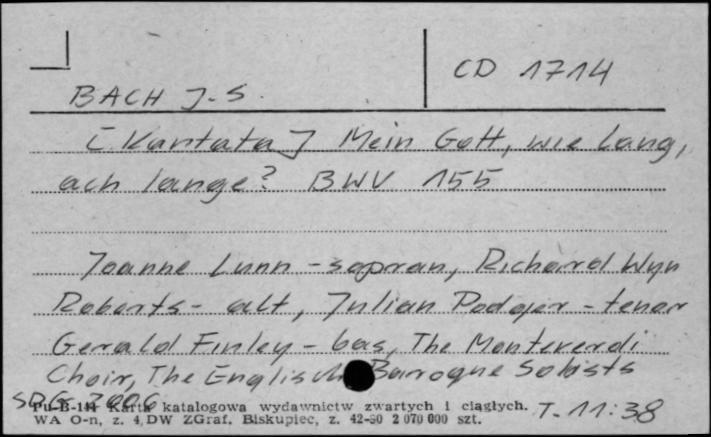 CD 1714
BACH J.S.
[Kantata] Mein Gott, wie lang,
ach lange? BWV 155
Joanne Lunn - sopran, Richard Wyn
Roberts - alt, Julian Podger - tenor
Gerald Finley - bas, The Monteverdi
Choir, The English Baroque Soloists
SDG 2006 T. 11:38
Pu-B-144 Karta katalogowa wydawnictw zwartych i ciągłych.
WA O-n, z. 4, DW ZGraf. Biskupiec, z. 42-90 2 070 000 szt.